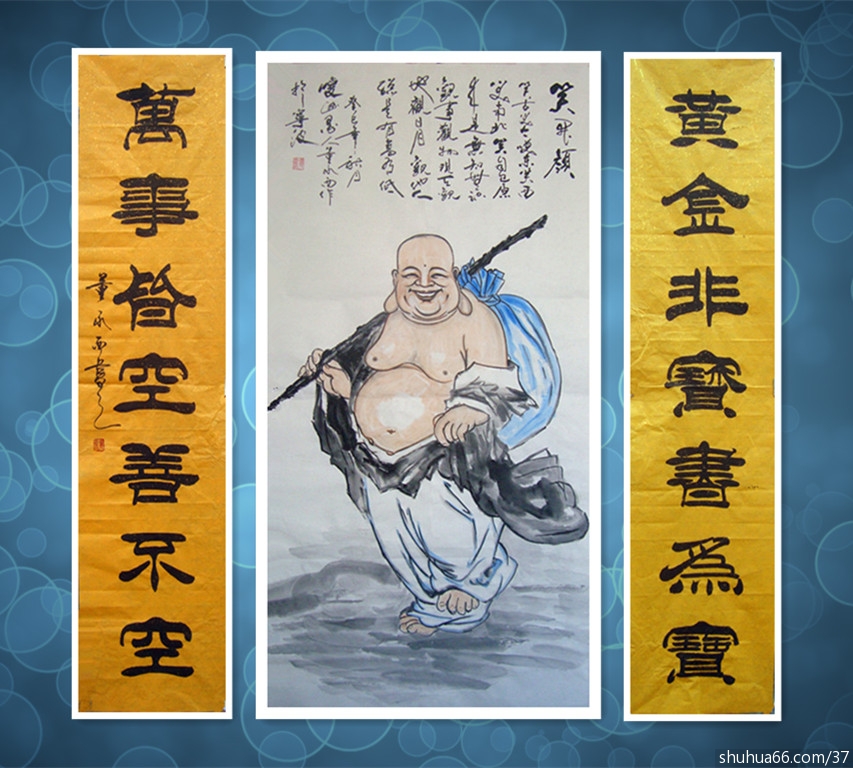 黃金非寶書爲寶
笑開顏
笑古笑今笑東笑西
笑南笑北笑自己原
來是無知無識
觀事觀物觀天觀
地觀日觀月觀他人
總是有高有低
癸巳年秋月
於寧波
萬事皆空善不空
shuhua66.com/37